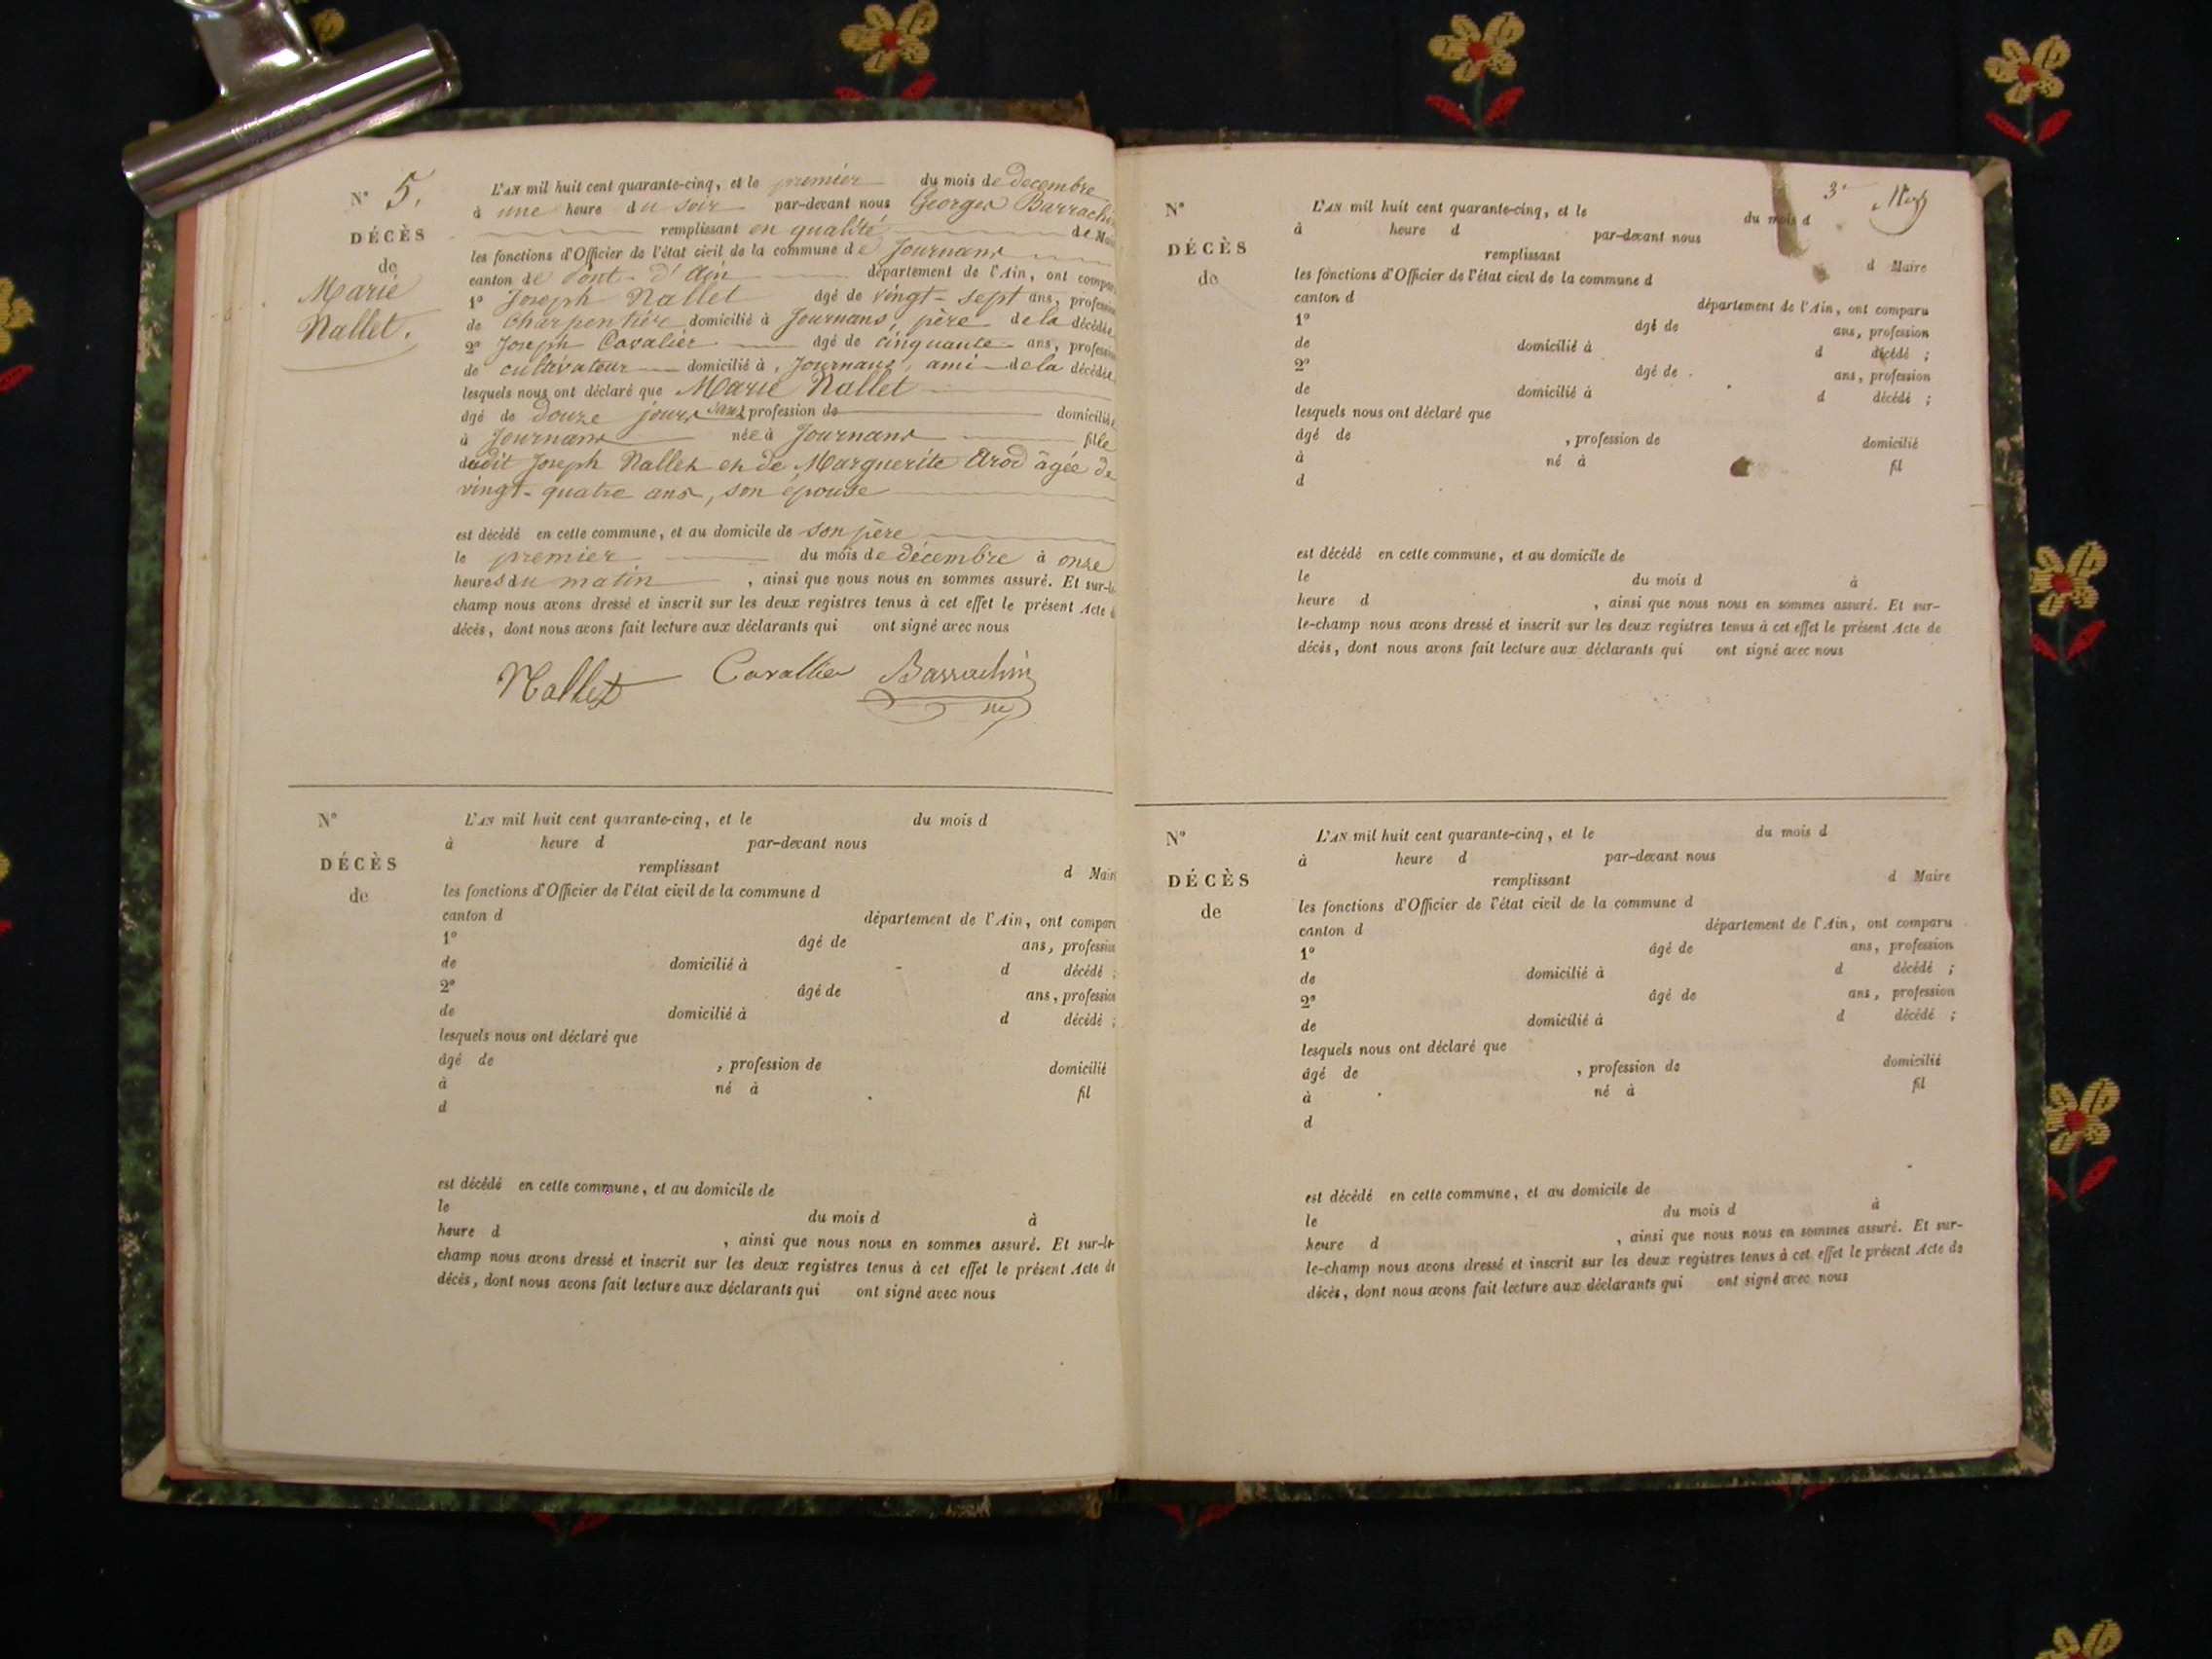 N° 5.
DÉCÈS
de
Marie
Nallet.
L'AN mil huit cent quarante-cinq, et le premier du mois de decembre
à une heure du soir par-devant nous Georges Barrachin
remplissant en qualité de Mai
les fonctions d'Officier de l'état civil de la commune de Journans
canton de Pont-d'Ain département de l'Ain, ont compar
1° Joseph Nallet âgé de vingt-sept ans, profession
de Charpentier domicilié à Journans, père de la décédée
2° Joseph Cavalier âgé de cinquante ans, profession
de cultivateur domicilié à, Journans, ami de la décédée
lesquels nous ont déclaré que Marie Nallet
âgé de douze jours sans profession de domiciliée
à Journans née à Journans fille
dudit Joseph Nallet et de Marguerite Arod âgée de
vingt-quatre ans, son épouse
est décédé en cette commune, et au domicile de son père
le premier du mois de décembre à onze
heures du matin, ainsi que nous nous en sommes assuré. Et sur-le
champ nous avons dressé et inscrit sur les deux registres tenus à cet effet le présent Acte d
décès, dont nous avons fait lecture aux déclarants qui ont signé avec nous
Nallet Cavallier Barrachin
N°
DÉCÈS
de
L'AN mil huit cent quarante-cinq, et le du mois d
à heure d par-devant nous
remplissant d Maire
les fonctions d'Officier de l'état civil de la commune d
canton d département de l'Ain, ont comparu
1° âgé de ans, profession
de domicilié à d décédé ;
2° âgé de ans, profession
de domicilié à d décédé ;
lesquels nous ont déclaré que
âgé de , profession de domicilié
à né à fil
d
est décédé en cette commune, et au domicile de
le du mois d à
heure d , ainsi que nous nous en sommes assuré. Et sur-le
champ nous avons dressé et inscrit sur les deux registres tenus à cet effet le présent Acte de
décès, dont nous avons fait lecture aux déclarants qui ont signé avec nous
3e
N°
DÉCÈS
de
L'AN mil huit cent quarante-cinq, et le du mois d
à heure d par-devant nous
remplissant d Maire
les fonctions d'Officier de l'état civil de la commune d
canton d département de l'Ain, ont comparu
1° âgé de ans, profession
de domicilié à d décédé ;
2° âgé de ans, profession
de domicilié à d décédé ;
lesquels nous ont déclaré que
âgé de , profession de domicilié
à né à fil
d
est décédé en cette commune, et au domicile de
le du mois d à
heure d , ainsi que nous nous en sommes assuré. Et sur-
le-champ nous avons dressé et inscrit sur les deux registres tenus à cet effet le présent Acte de
décès, dont nous avons fait lecture aux déclarants qui ont signé avec nous
N°
DÉCÈS
de
L'AN mil huit cent quarante-cinq, et le du mois d
à heure d par-devant nous
remplissant d Maire
les fonctions d'Officier de l'état civil de la commune d
canton d département de l'Ain, ont comparu
1° âgé de ans, profession
de domicilié à d décédé ;
2° âgé de ans, profession
de domicilié à d décédé ;
lesquels nous ont déclaré que
âgé de , profession de domicilié
à né à fil
d
est décédé en cette commune, et au domicile de
le du mois d à
heure d , ainsi que nous nous en sommes assuré. Et sur-
le-champ nous avons dressé et inscrit sur les deux registres tenus à cet effet le présent Acte de
décès, dont nous avons fait lecture aux déclarants qui ont signé avec nous